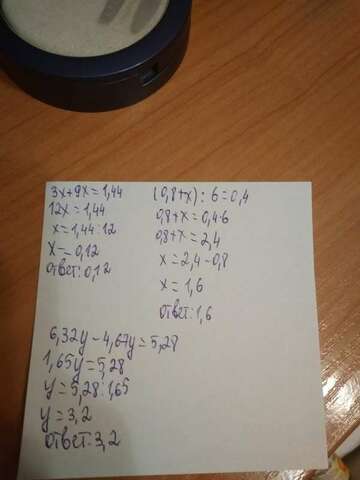 3x+9x=1,44
12x=1,44
x=1,44:12
x=0,12
ответ:0,12
(0,8+x):6=0,4
0,8+x=0,4·6
0,8+x=2,4
x=2,4-0,8
x=1,6
ответ:1,6
6,32y-4,67y=5,28
1,65y=5,28
y=5,28:1,65
y=3,2
ответ:3,2